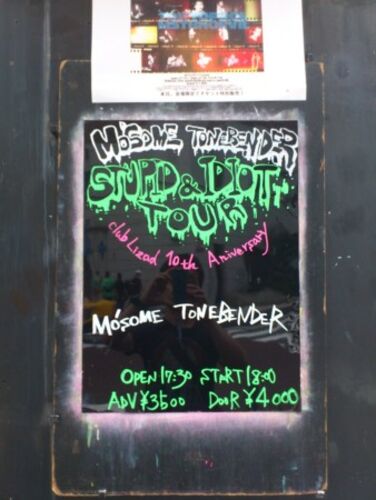 MO'SOME TONEBENDER
STUPID & IDIOTTY
TOUR
club Lizad 10th Aniversary
MO'SOME TONEBENDER
OPEN 17:30 START 18:00
ADV ¥3500 DOOR ¥4000